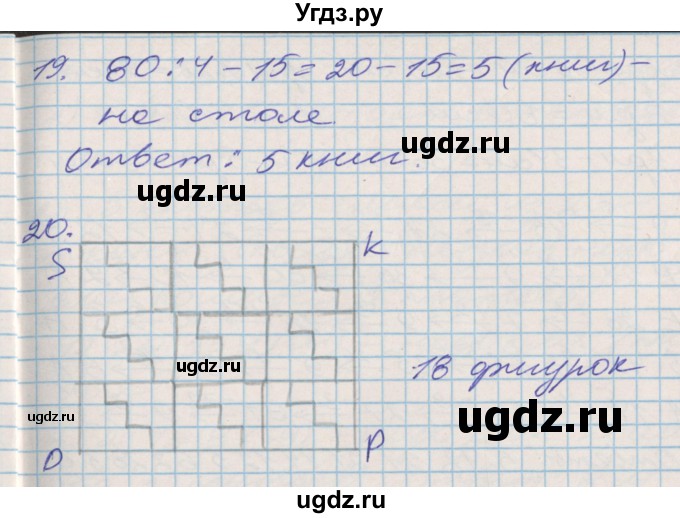 Угдз.ру
19. 80 : 4 - 15 = 20 - 15 = 5 (книг) -
на столе.
ugdz.ru
Ответ: 5 книг.
ugdz.ru
20.
S K
ugdz.ru
18 фигурок
ugdz.ru
ugdz.ru
D P
ugdz.ru